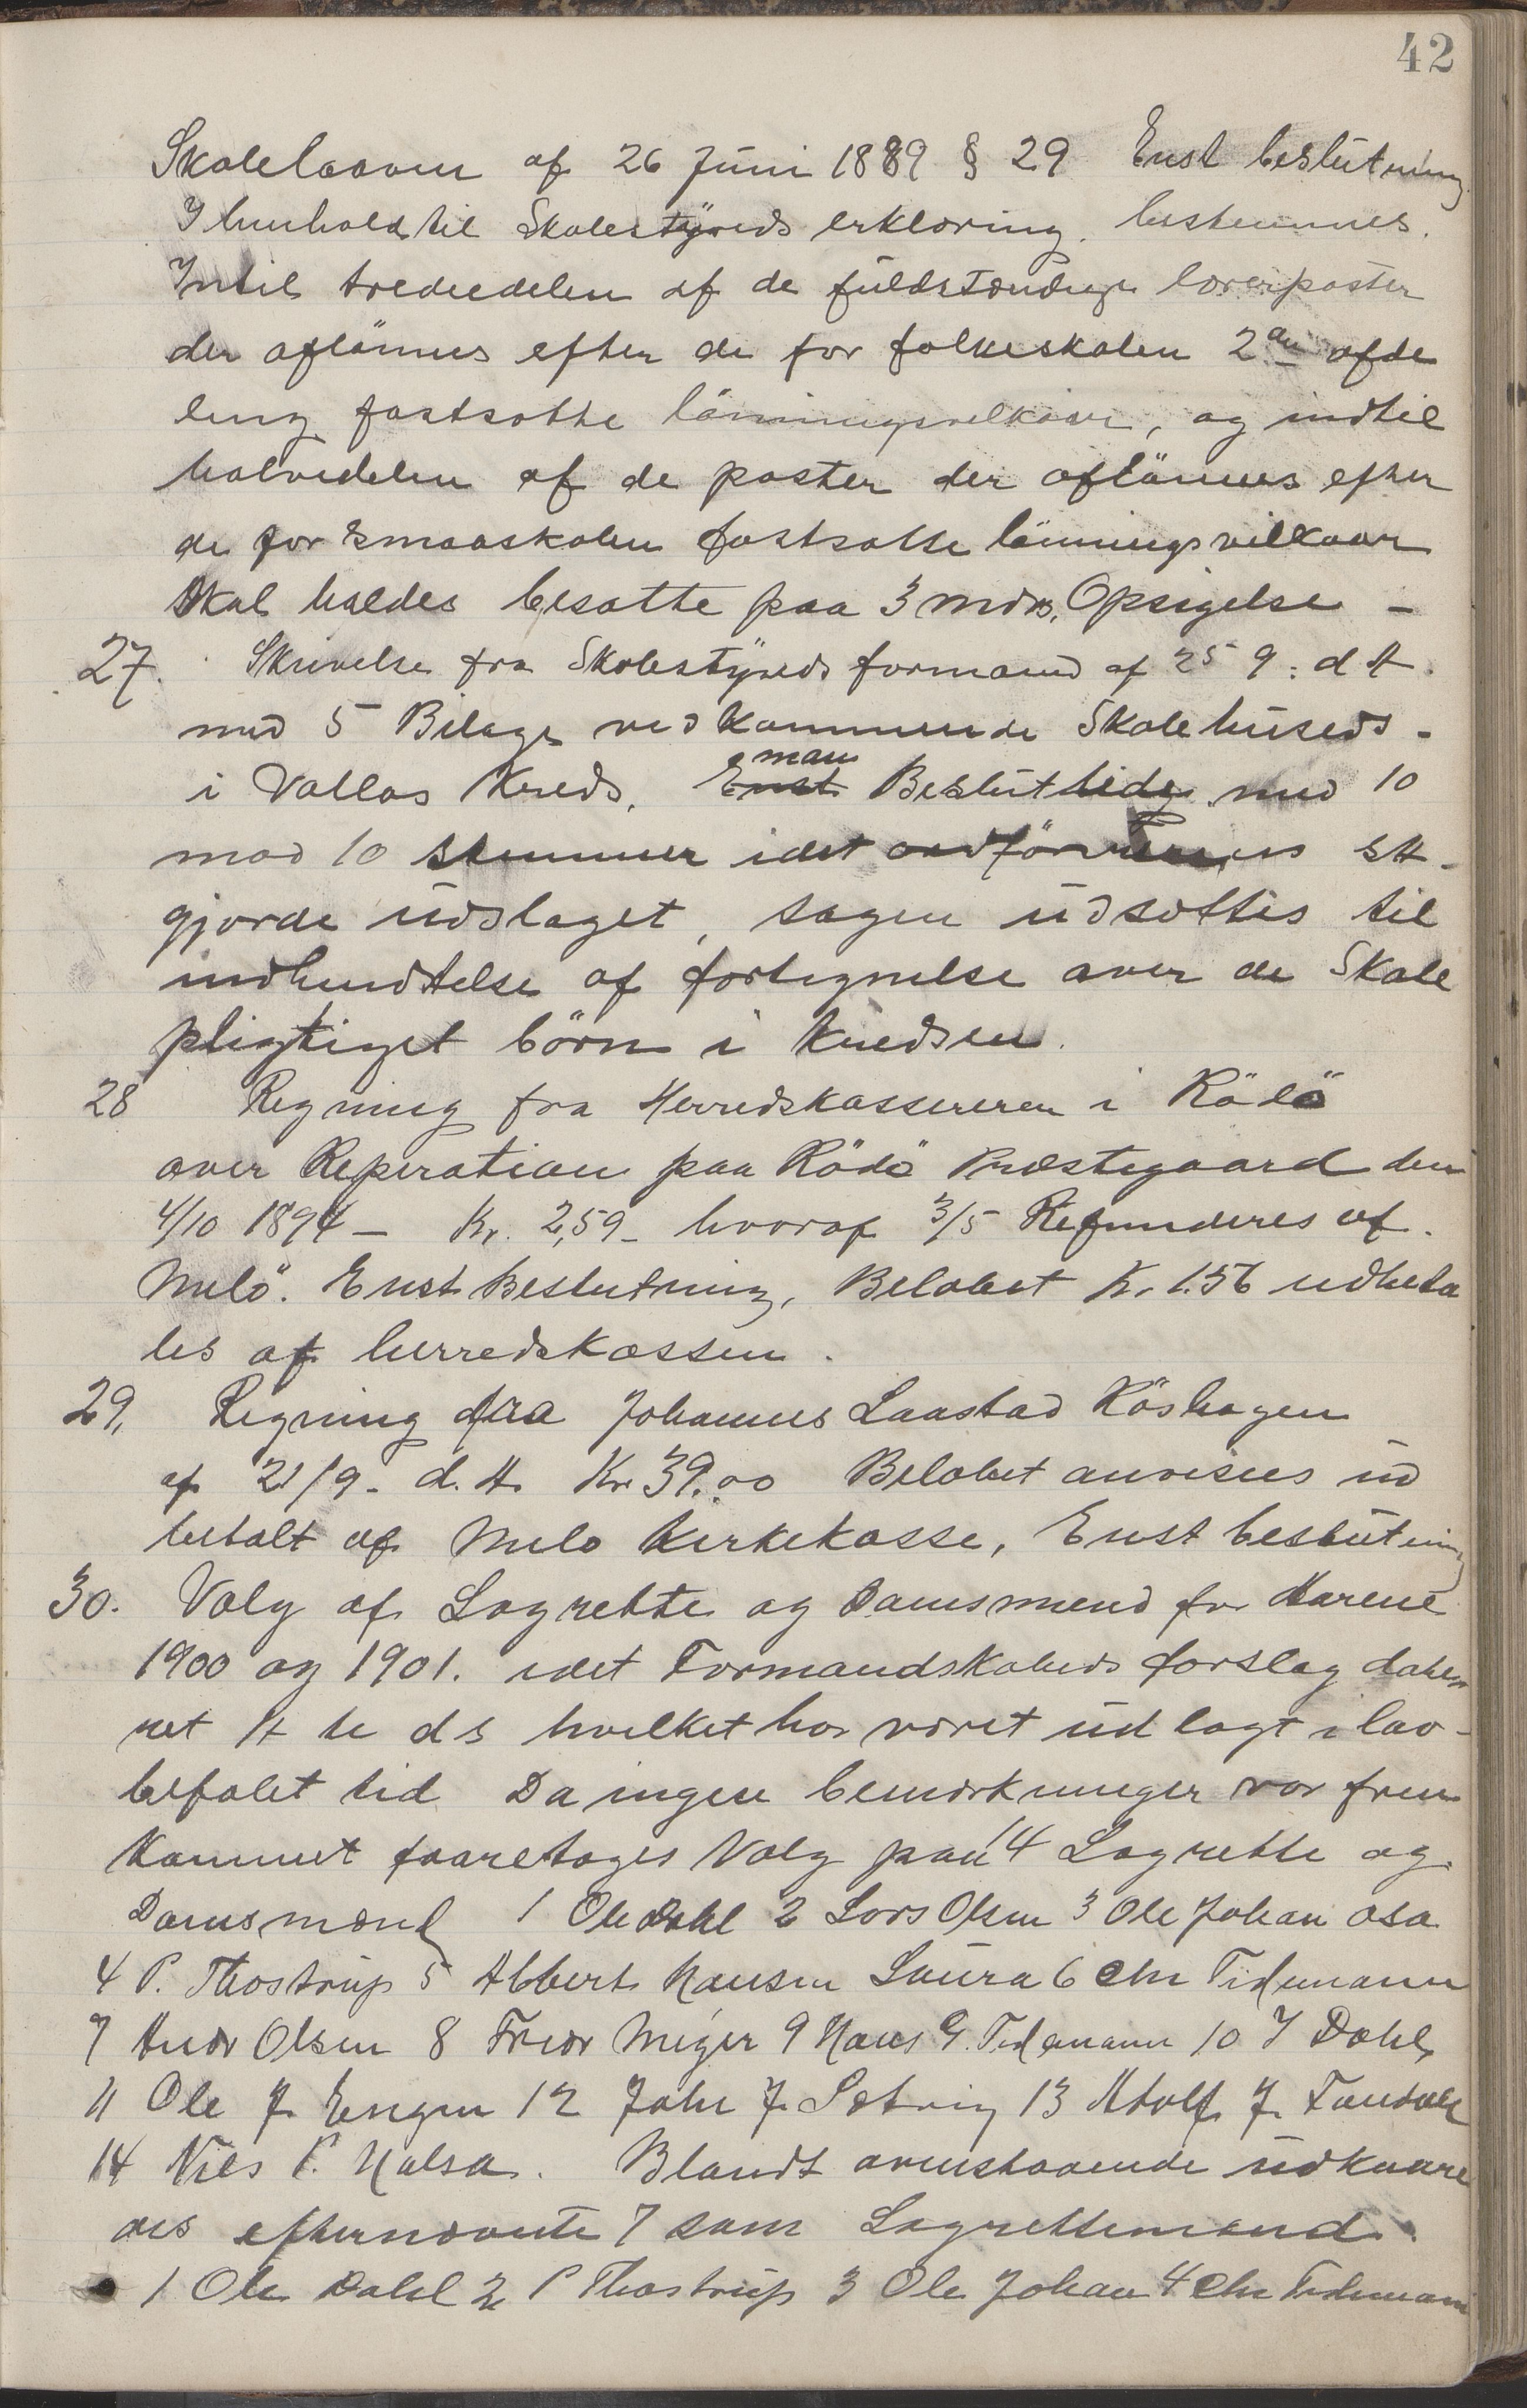 42
Skolelaaven af 26 Juni 1889 § 29 Enst beslutning
I henhold til Skolestyreds erklæring bestemmes.
Intil tredjedelen af de fuldstændige lærerposter
der aflønnes efter de for folkeskolen 2den afde
ling fastsatte lønningsvilkaar, og indtil
halvedelen af de poster der aflønnes efter
de for Smaaskolen fastsatte lønningsvilkaar
Skal holdes besatte paa 3 mdrs, Opsigelse –
27. Skrivelse fra Skolestyreds formand af 25 9: d A.
med 5 Bilage vedkommende Skolehuseds –
i Vallas Kreds. Enst man Beslutede med 10
mod 10 stemmer idet ordførerens st
gjorde udslaget, sagen udsættes til
indhendtelse af fortegnelse over de Skole
pligtiget børn i Kredsen.
28 Regning fra Herredskassereren i Rödö
over Reperation paa Rödö Præstegaard den
4/10 1894 – Kr. 2,59 – hvoraf 3/5 Refunderes af.
Melö. Enst Beslutning, Beløbet Kr. 1.56 udbeta
les af herredskassen.
29, Regning fra Johannes Laastad Röshagen
af 21/9 – d. A. Kr 39.00 Beløbet anvises ud
betalt af Melö Kirkekasse, Enst beslutning
30. Valg af Lagrette og Domsmend for Aarene
1900 og 1901. idet Formandskabeds forslag date
ret A te ds hvilket har været ud lagt i lov-
befalet tid Da ingen bemerkninger var frem
kommet foaretages Valg paa 14 Lagrette og
Domsmænd 1 Ole Dahl 2 Lars Olsen 3 Ole Johan Osa
4 P. Thostrup 5 Albert Hansen Saura 6 Chr Tidemann
7 Andr Olsen 8 Fredr Meyer 9 Hans G. Tidemann 10 J Dahl
11 Ole J. Engen 12 Johr J. Setvig 13 Adolf J.
14 Nils P. Halsa. Blandt ovenstaaende udkaare
des efternævnte 7 som Lagrettemænd.
1 Ole Dahl 2 P Thostrup 3 Ole Johan 4 Chr Tidemann